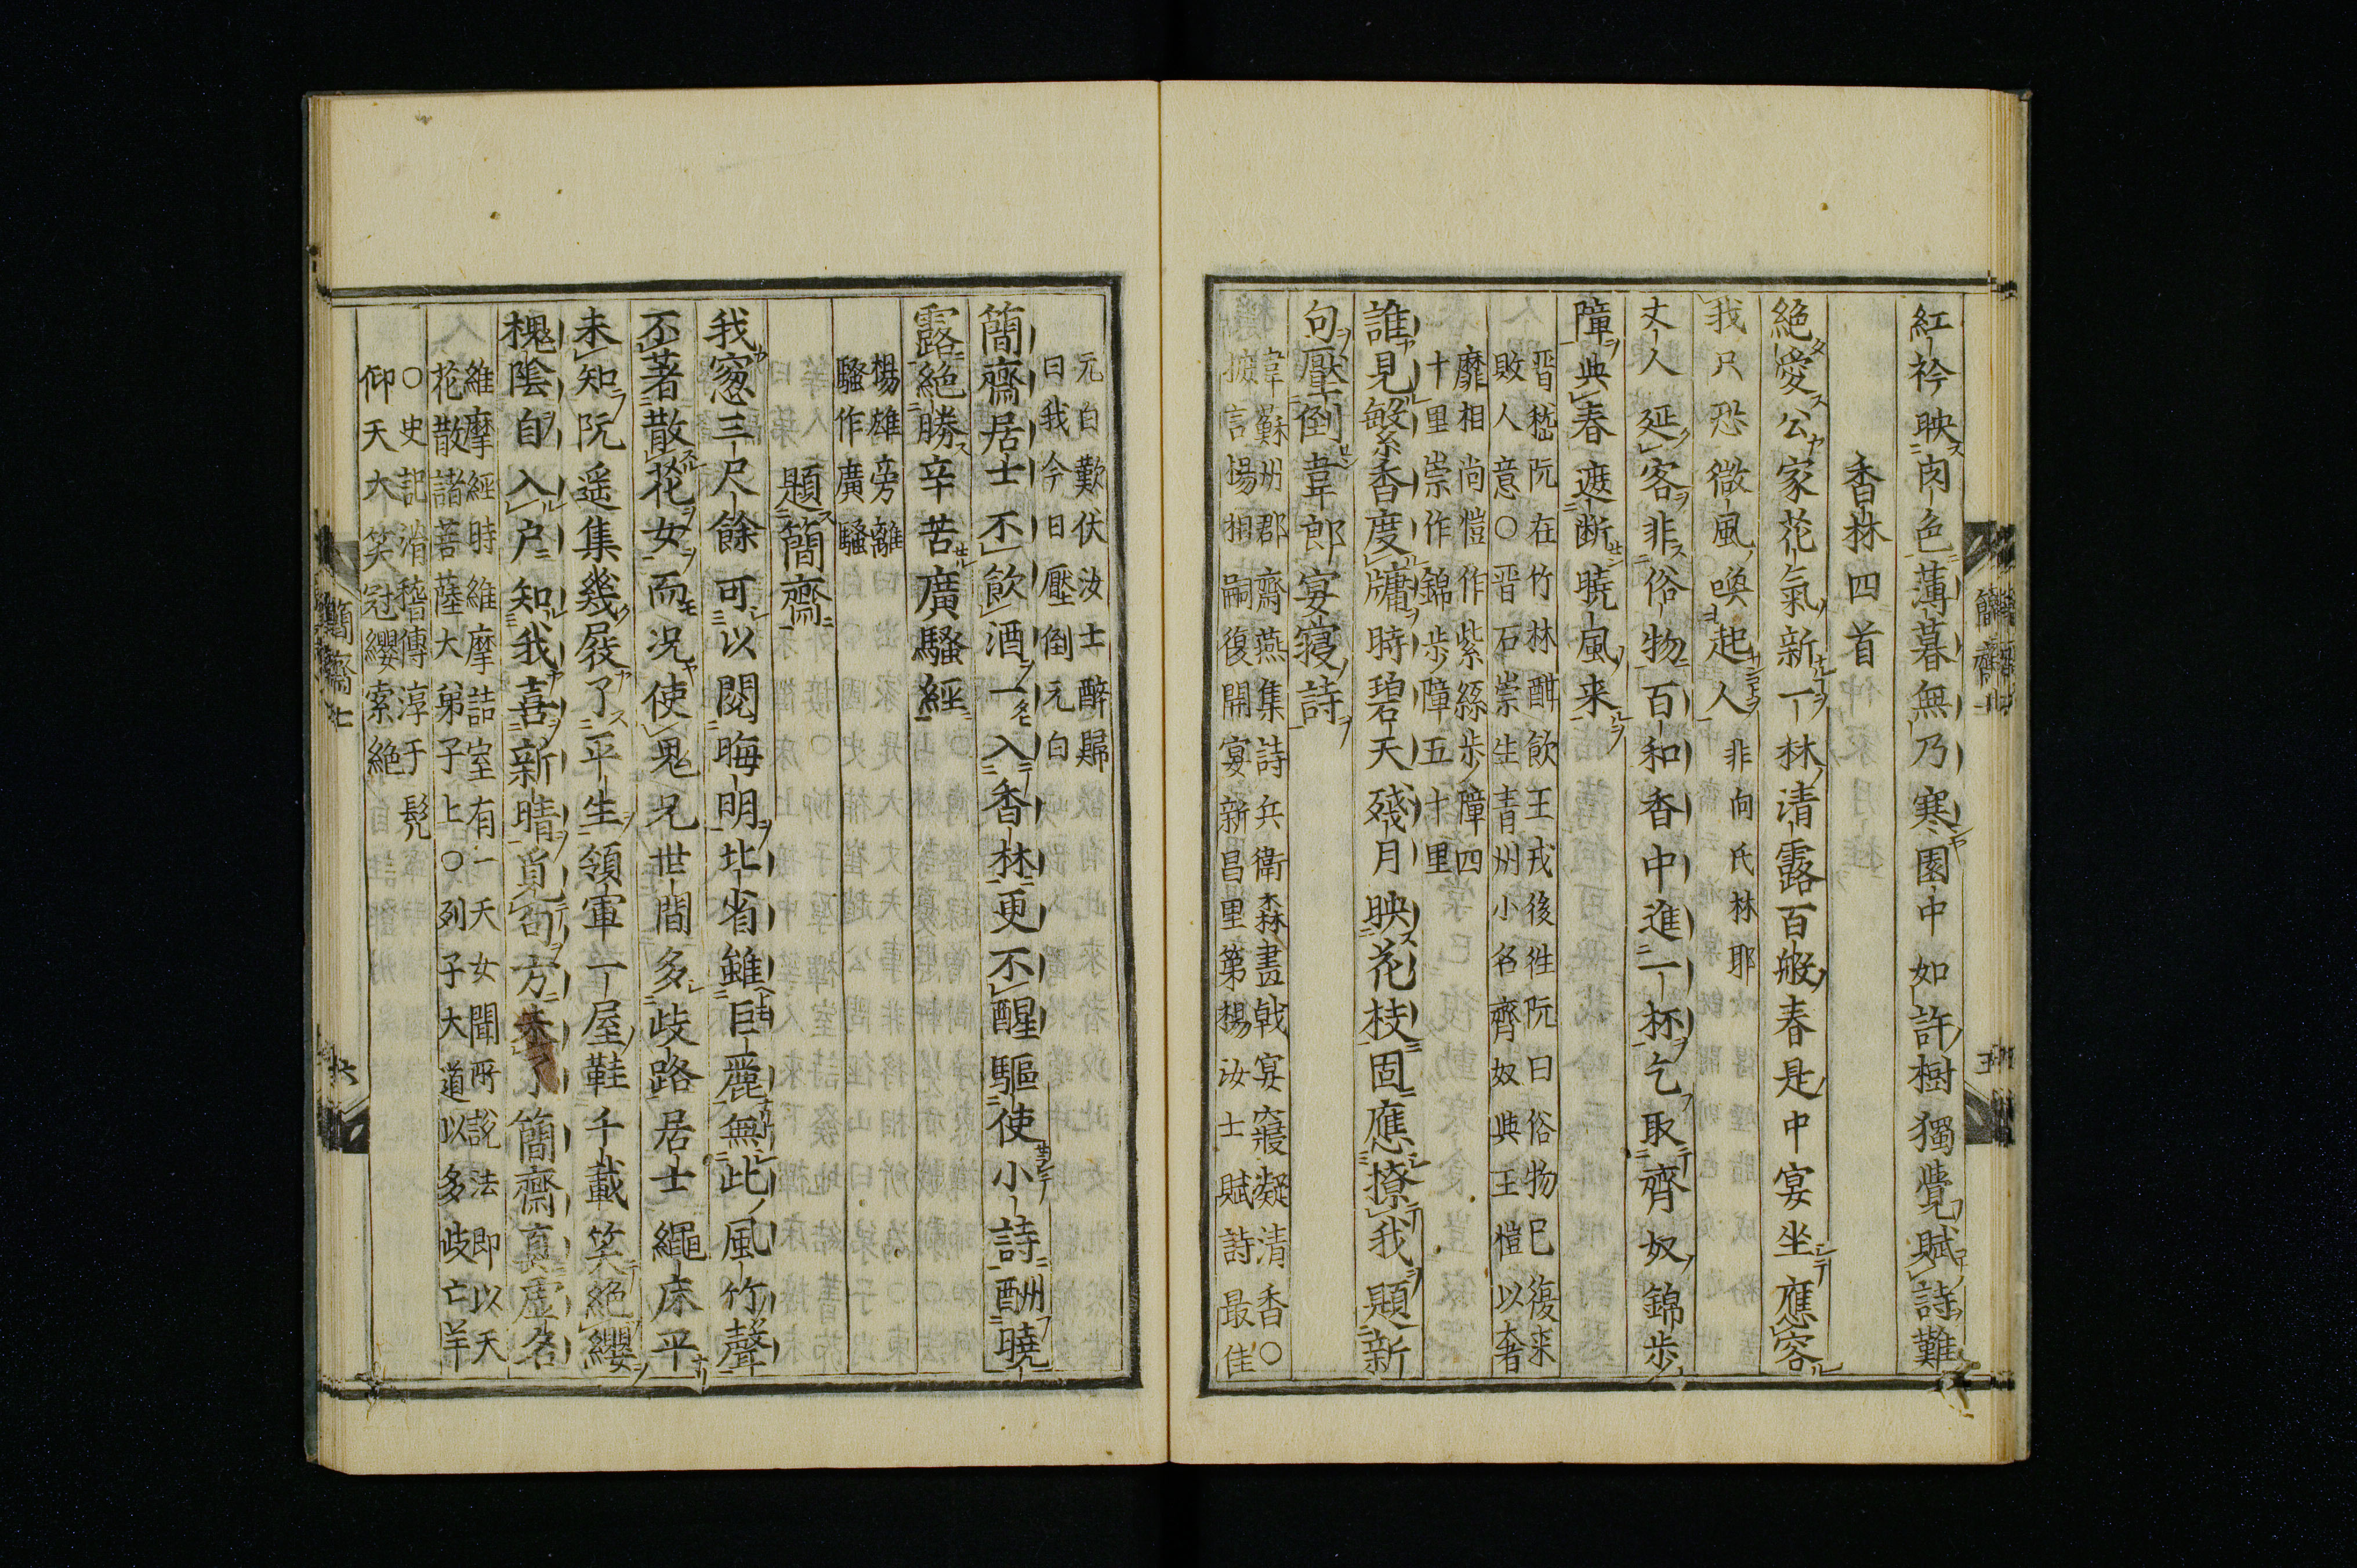 紅衿映肉色薄暮無乃寒園中如許樹獨覺賦詩難
香林四首
絕愛公家花氣新一林清露百般春是中宴坐應容
我只恐微風喚起人非向氏林耶
丈人延客非俗物百和香中進一杯乞取齊奴錦步
障與春遮断曉風来
晋嵇阮在竹林酣飲王戎後徃阮曰俗物已復来
敗人意○晋石崇生青州小名齊奴與王愷以奢
靡相尚愷作紫絲步障四
十里崇作錦步障五十里
誰見繁香度牖時碧天殘月映花枝固應撩我題新
句壓倒韋郎宴寢詩
韋蘇州郡齋燕集詩兵衛森畫戟宴寢凝清香○
摭言楊相嗣復開宴新昌里第楊汝士賦詩最佳
簡齋
元白歎伏汝士醉歸
曰我今日壓倒元白
簡齋居士不飲酒一入香林更不醒驅使小詩酬曉
露絕勝辛苦廣騷經
楊雄旁離
騷作廣騷
題簡齋
我窓三尺餘可以閱晦明北省雖巨麗無此風竹聲
不著散花女而况使鬼兄世間多歧路居士繩床平
未知阮遥集幾屐了平生領軍一屋鞋千載笑絕纓
槐陰自入户知我喜新晴覓句方未了簡齋真虛名
維摩經時維摩詰室有一天女聞所說法即以天
花散諸菩薩大弟子上○列子大道以多歧亡羊
○史記滑稽傳淳于髡
仰天大笑冠纓索絕
簡齋七
六